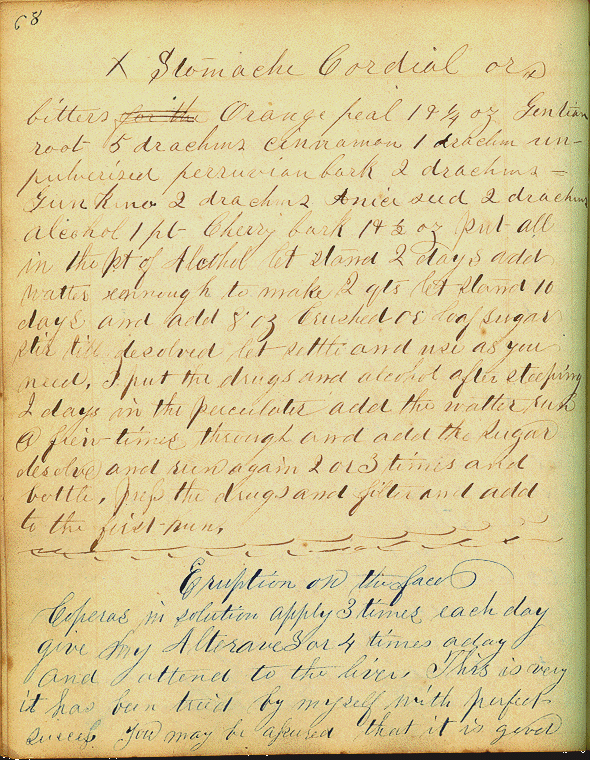 68
X Stomache Cordial or
bitters for the Orange peal 1 & ¼ oz Gentian
root 5 drachms cinnamon 1 drachm un-
pulverised perruvian bark 2 drachms =
Gum Kino 2 drachms Anice seed 2 drachms
alcohol 1 pt - Cherry bark 1 & ½ oz put all
in the pt of Alcohol let stand 2 days add
watter ennough to make 2 qts let stand 10
days and add 8 oz crushed or loaf sugar
stir till desolved let settle and use as you
need. I put the drugs and alcohol after steeping
2 days in the percculater add the watter run
a few times through and add the sugar
desolve and run again 2 or 3 times and
bottle. press the drugs and filter and add
to the first run.
Eruption on the face
Coperas in solution apply 3 times each day
give my Alterave 3 or 4 times a day
and attend to the liver This is very
it has been tried by myself with perfect
success. You may be assured that it is good